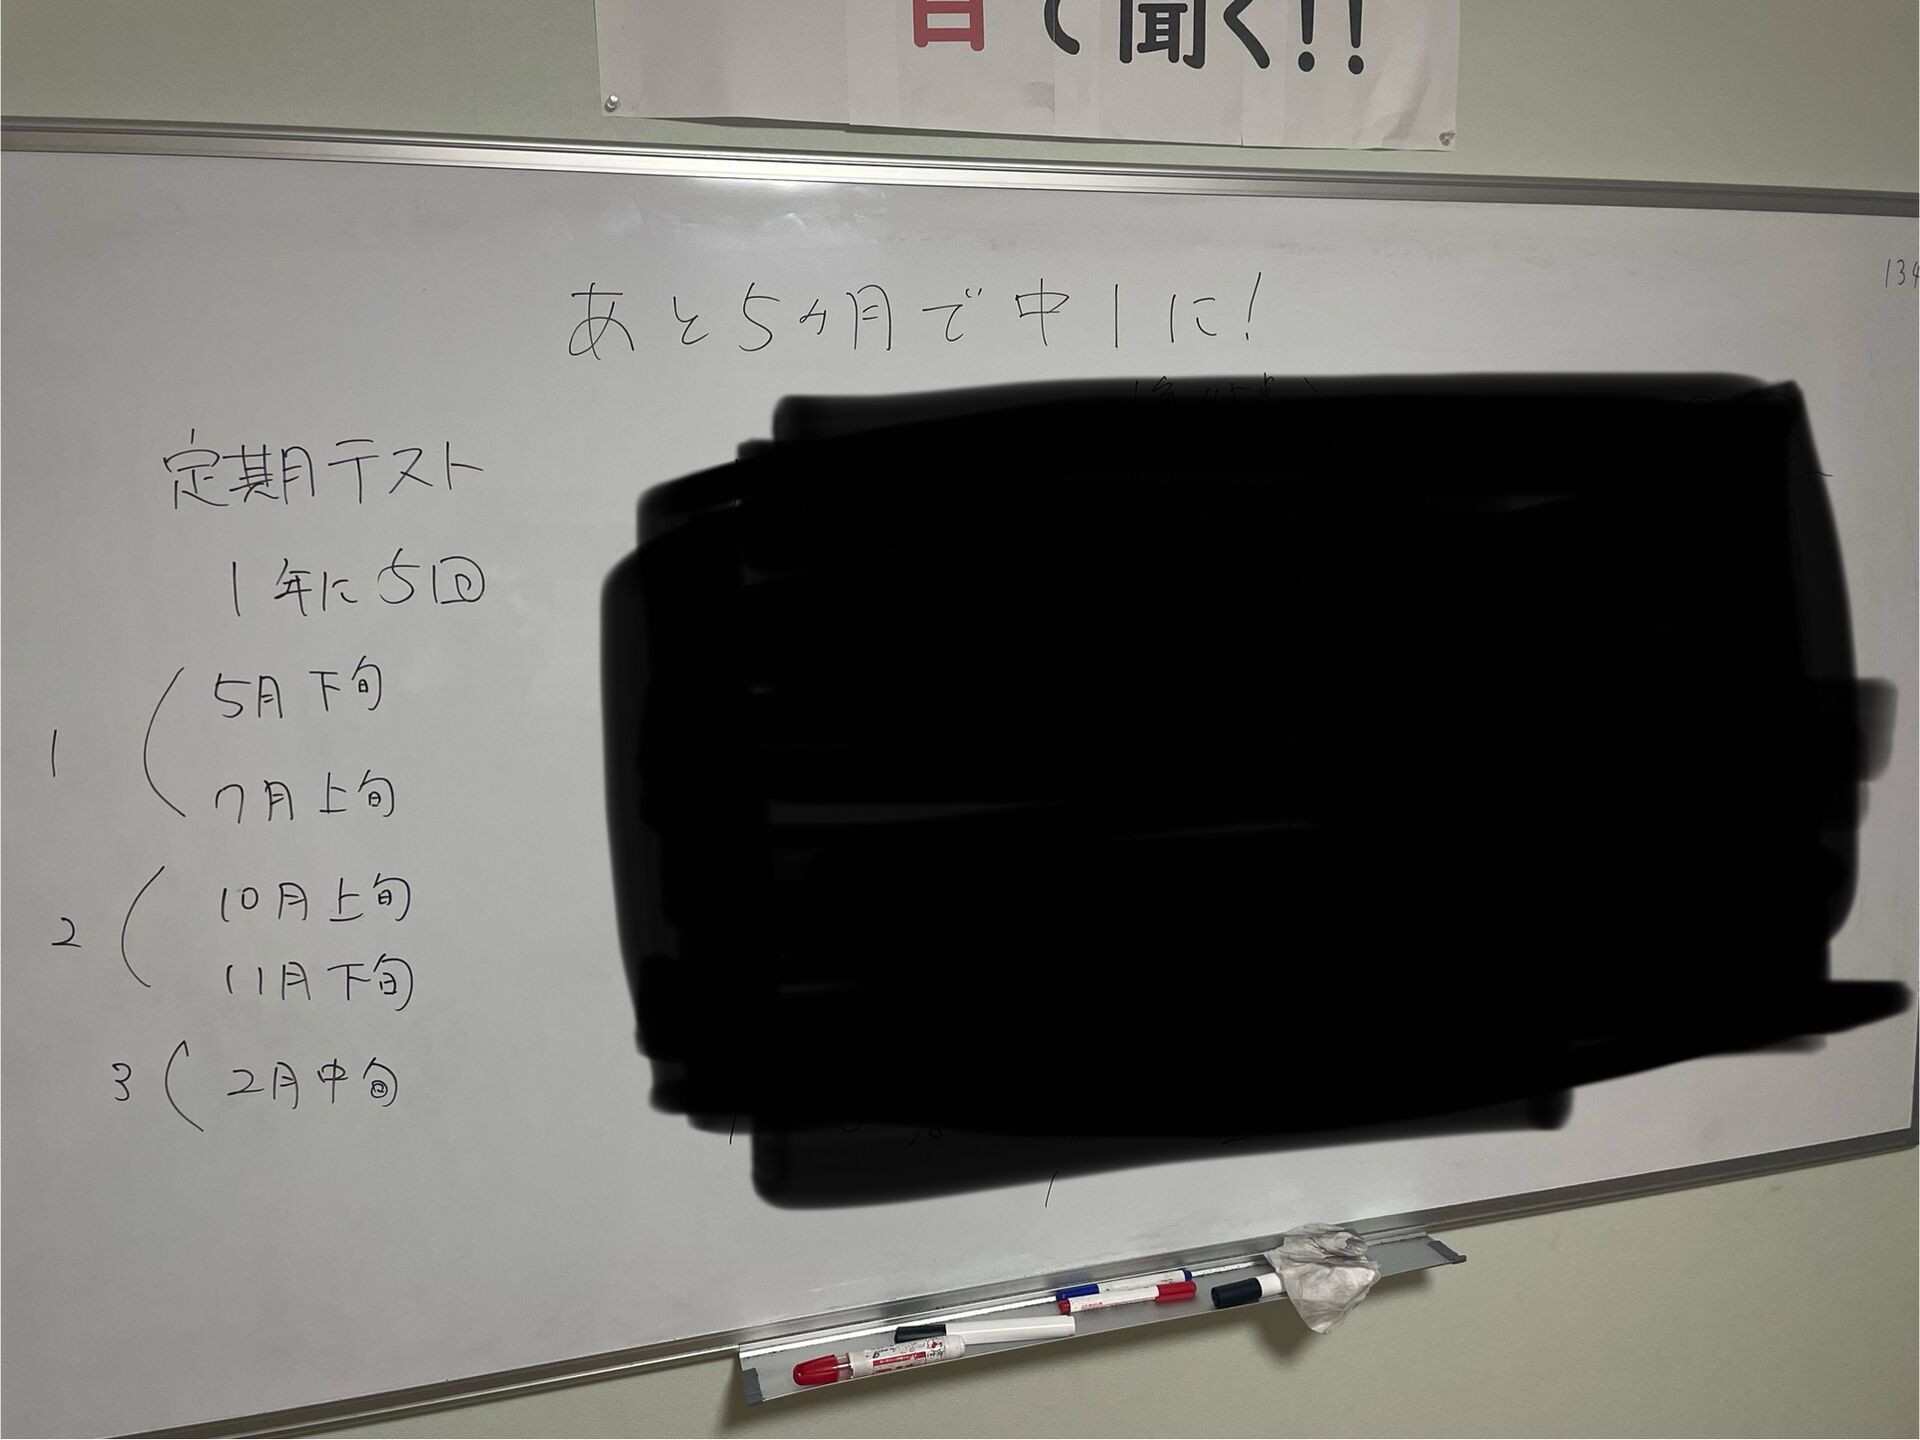 目で聞く!!
134
あと5ヶ月で中1に!
定期テスト
1年に5回
1
5月下旬
7月上旬
2
10月上旬
11月下旬
3
2月中旬